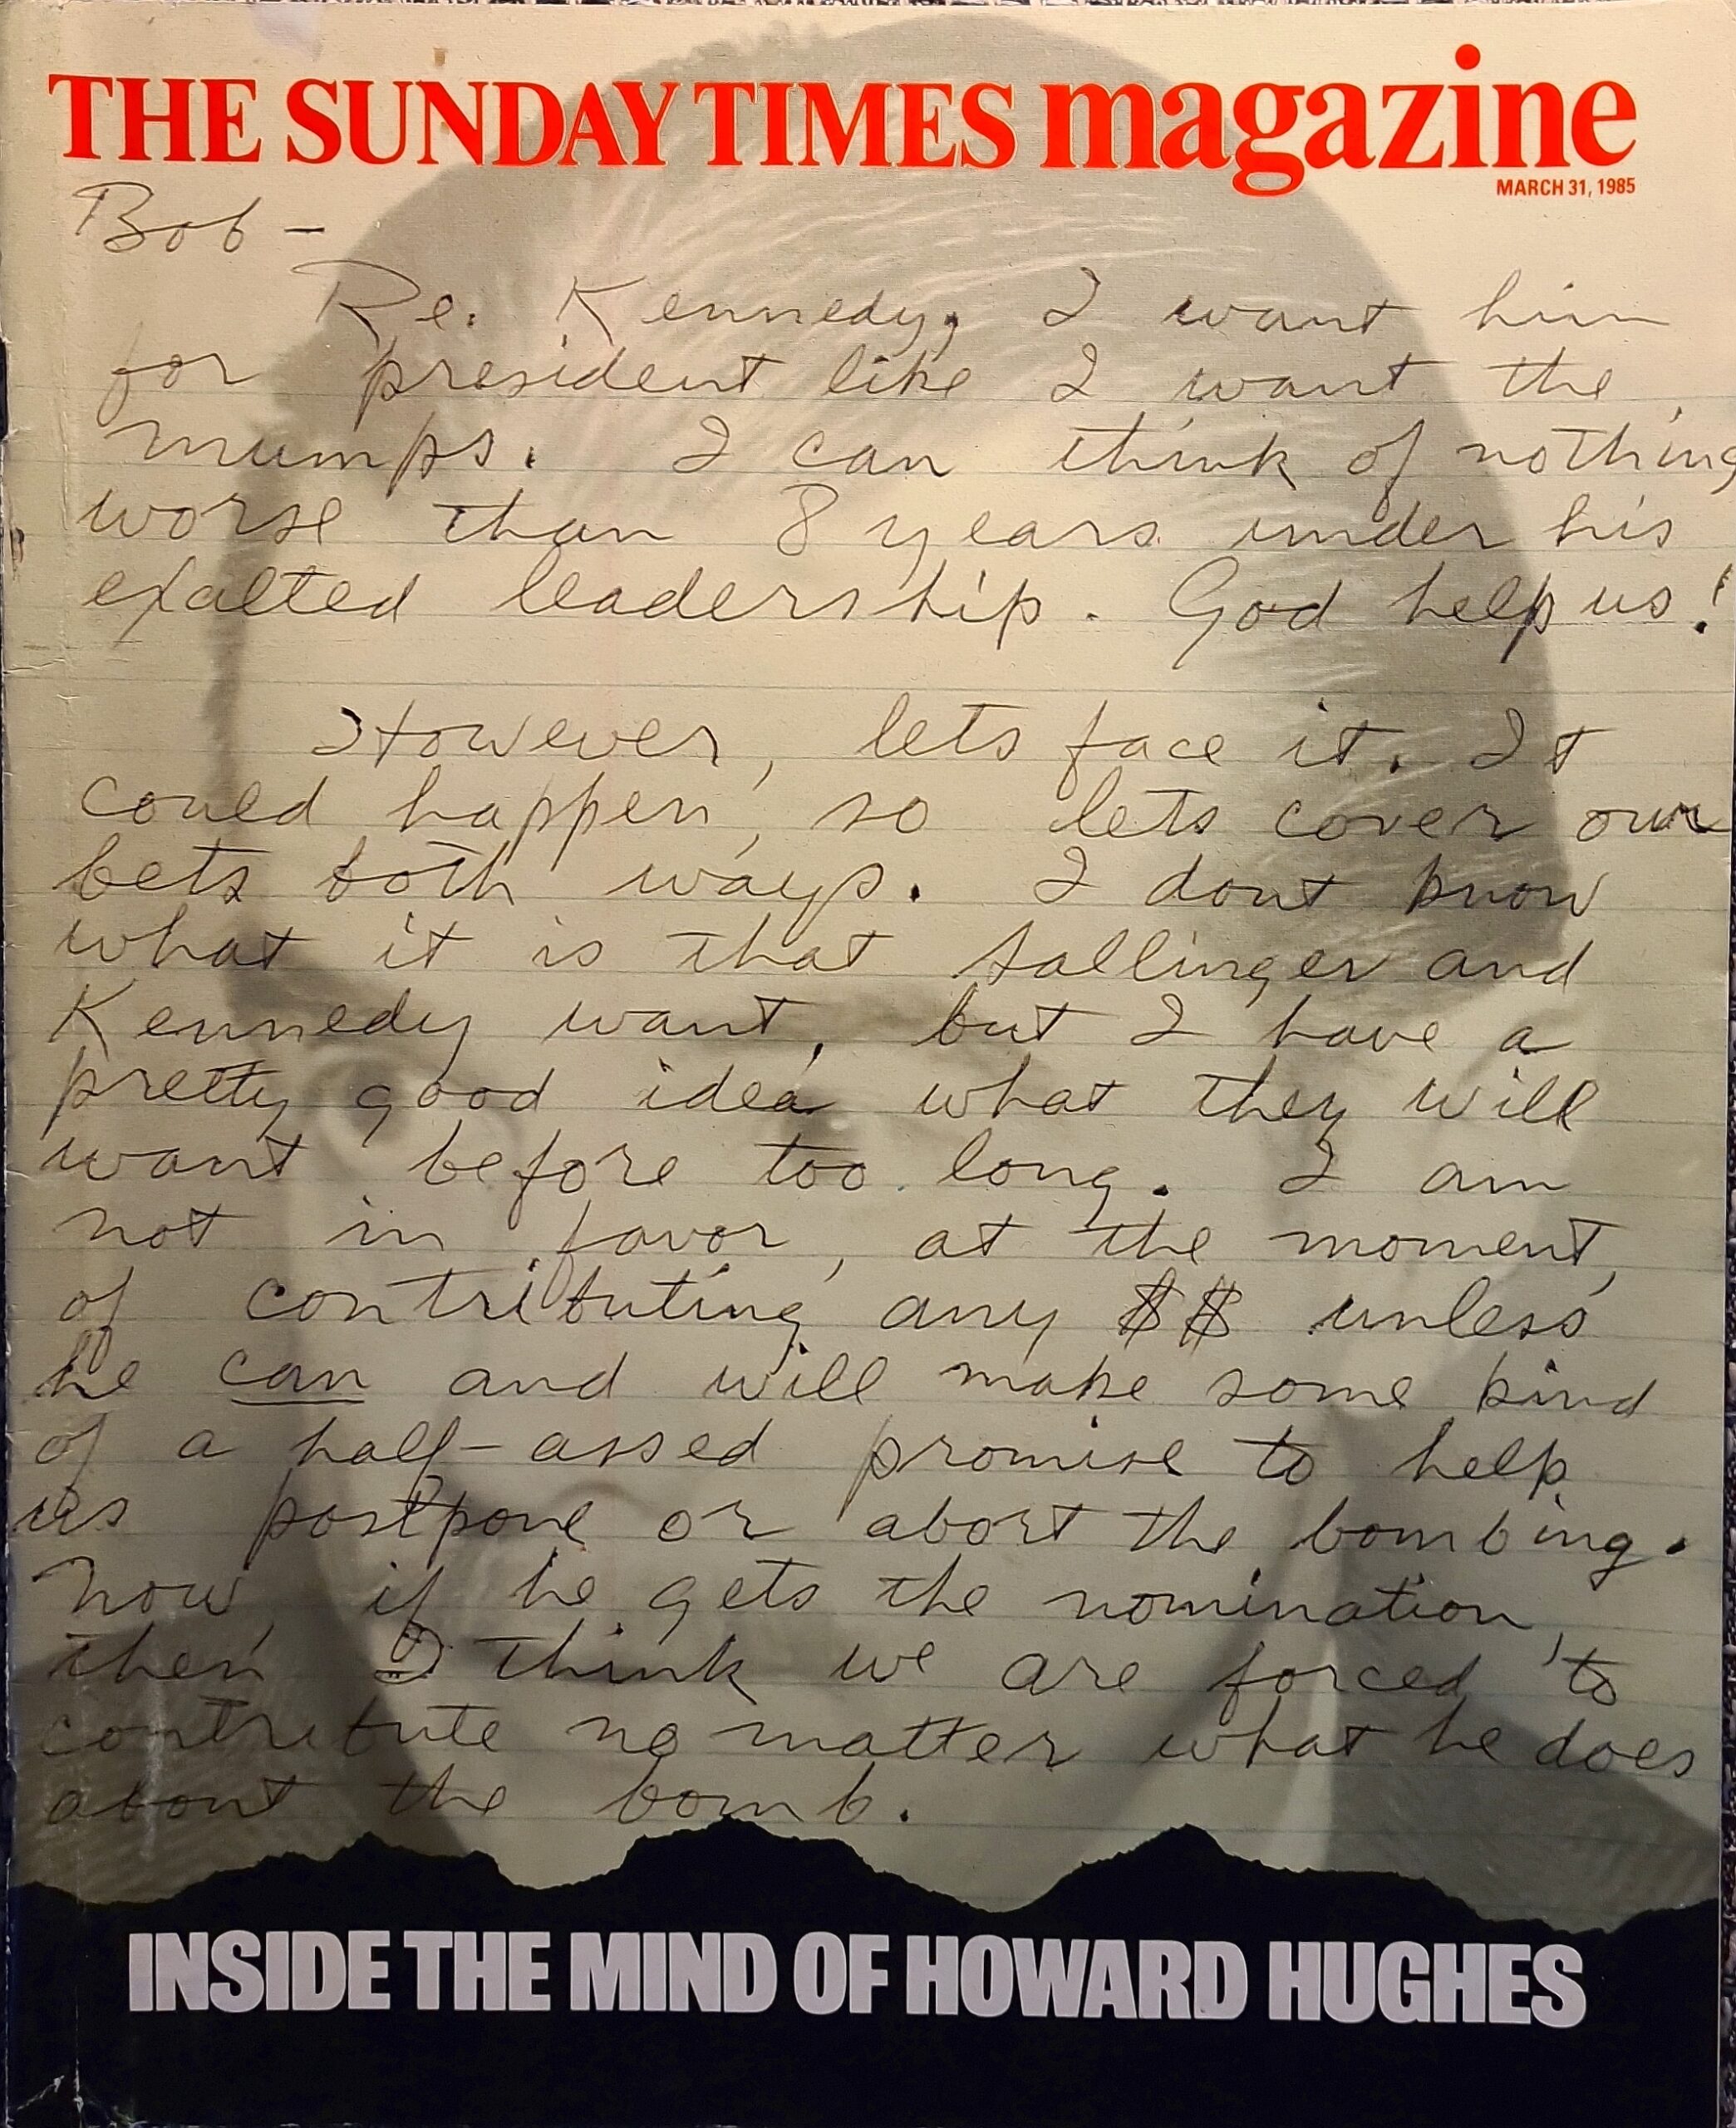 THE SUNDAY TIMES magazine
MARCH 31, 1985
Bob –
Re. Kennedy, I want him
for president like I want the
mumps. I can think of nothing
worse than 8 years under his
exalted leadership. God help us!
However, lets face it. It
could happen, so lets cover our
bets both ways. I dont know
what it is that Sallinger and
Kennedy want, but I have a
pretty good idea what they will
want before too long. I am
not in favor, at the moment,
of contributing any $$ unless
he can and will make some kind
of a half-assed promise to help
us postpone or abort the bombing.
Now, if he gets the nomination,
then I think we are forced to
contribute no matter what he does
about the bomb.
INSIDE THE MIND OF HOWARD HUGHES